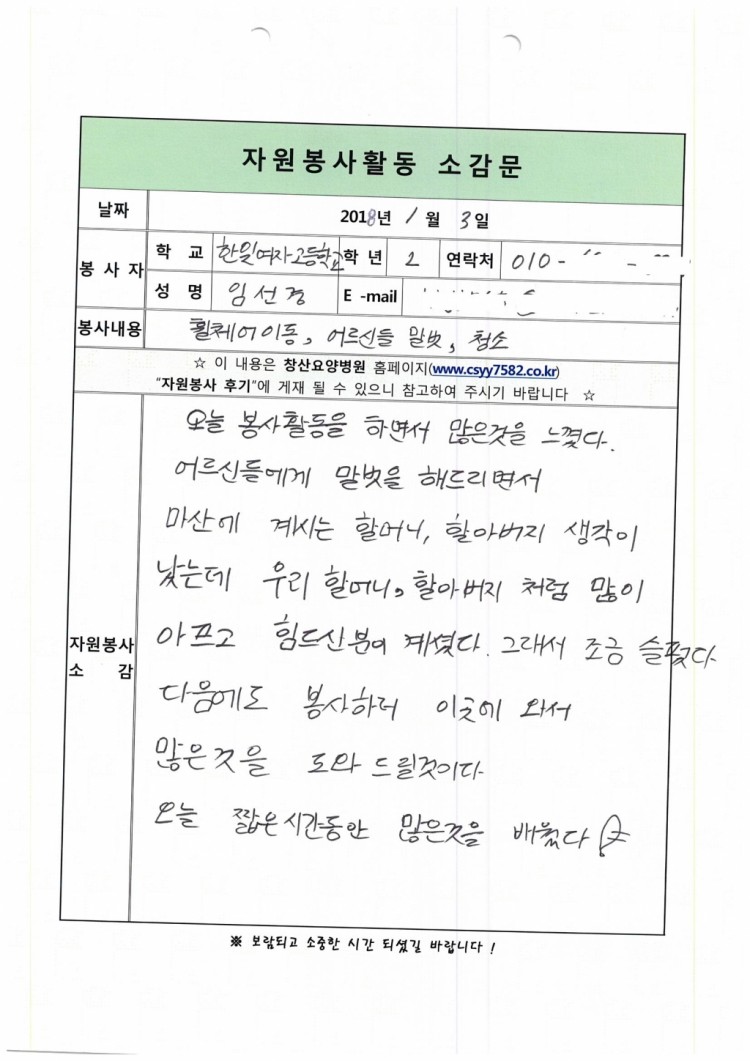 자원봉사활동 소감문
날짜 2018년 1월 3일
봉사자 학교 한일여자고등학교 학년 2 연락처 010-
성명 임선경 E-mail
봉사내용 휠체어이동, 어르신들 말벗, 청소
☆ 이 내용은 창산요양병원 홈페이지(www.csyy7582.co.kr)
"자원봉사 후기"에 게재 될 수 있으니 참고하여 주시기 바랍니다 ☆
자원봉사
소감
오늘 봉사활동을 하면서 많은것을 느꼈다.
어르신들에게 말벗을 해드리면서
마산에 계시는 할머니, 할아버지 생각이
났는데 우리 할머니, 할아버지 처럼 많이
아프고 힘드신분이 계셨다. 그래서 조금 슬펐다
다음에도 봉사하러 이곳에 와서
많은것을 도와 드릴것이다
오늘 짧은시간동안 많은것을 배웠다
※ 보람되고 소중한 시간 되셨길 바랍니다 !